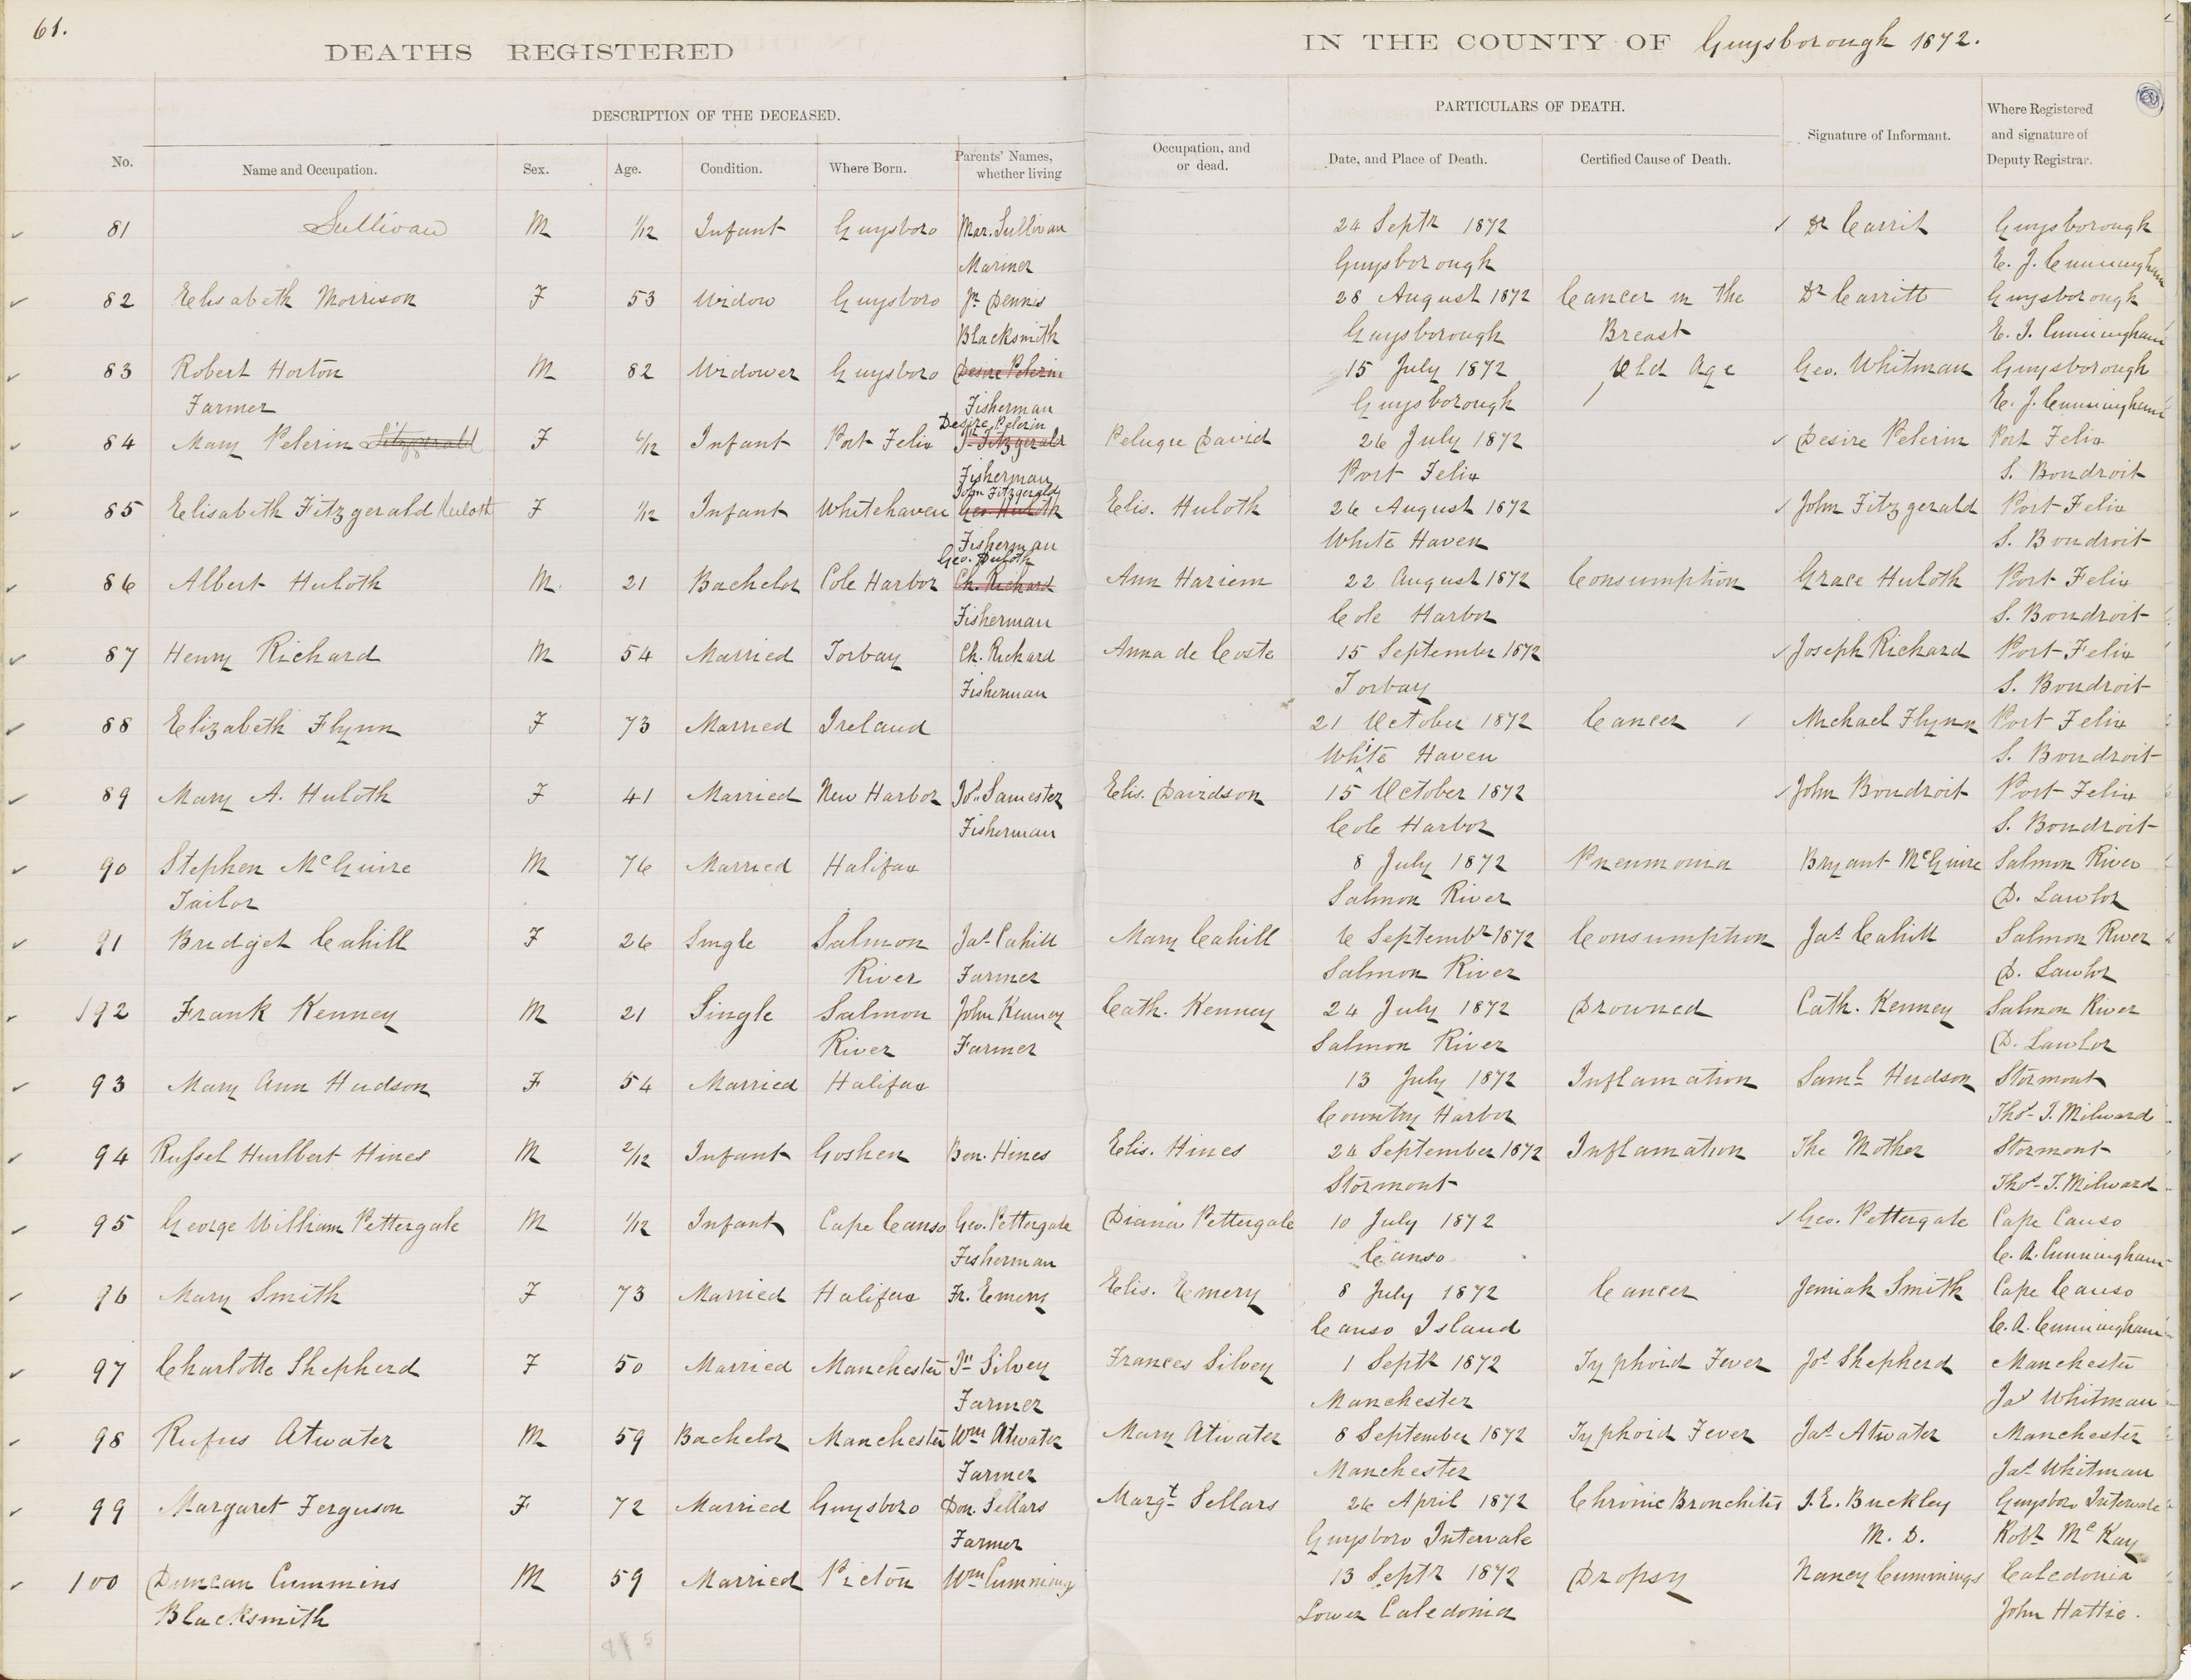 61.
DEATHS REGISTERED IN THE COUNTY OF Guysborough 1872.
DESCRIPTION OF THE DECEASED. PARTICULARS OF DEATH.
No. Name and Occupation. Sex. Age. Condition. Where Born. Parents' Names, whether living Occupation, and or dead. Date, and Place of Death. Certified Cause of Death. Signature of Informant. Where Registered and signature of Deputy Registrar.
81 Sullivan M 1/12 Infant Guysboro Mar. Sullivan 24 Septr 1872 Dr Carrit Guysborough
Mariner Guysborough E. J. Cunningham
82 Elisabeth Morrison F 53 Widow Guysboro Jr. Dennis 28 August 1872 Cancer in the Dr Carritt Guysborough
Blacksmith Guysborough Breast E. J. Cunningham
83 Robert Horton M 82 Widower Guysboro Desire Pelerin 15 July 1872 Old Age Geo. Whitman Guysborough
Farmer Fisherman Guysborough E. J. Cunningham
Desire Pelerin
84 Mary Pelerin Fitzgerald F 6/12 Infant Port Felix Jn Fitzgerald Pelugie David 26 July 1872 Desire Pelerin Port Felix
Fisherman Port Felix S. Boudroit
John Fitzgerald
85 Elisabeth Fitzgerald Huloth F 1/12 Infant Whitehaven Geo Huloth Elis. Huloth 26 August 1872 John Fitzgerald Port Felix
Fisherman White Haven S. Boudroit
Geo. Huloth
86 Albert Huloth M. 21 Bachelor Cole Harbor Ch. Richard Ann Hariem 22 August 1872 Consumption Grace Huloth Port Felix
Fisherman Cole Harbor S. Boudroit
87 Henry Richard M 54 Married Torbay Ch. Richard Anna de Coste 15 September 1872 Joseph Richard Port Felix
Fisherman Torbay S. Boudroit
88 Elizabeth Flynn F 73 Married Ireland 21 October 1872 Cancer Michael Flynn Port Felix
White Haven S. Boudroit
89 Mary A. Huloth F 41 Married New Harbor Jos. Samester Elis. Davidson 15 October 1872 John Boudroit Port Felix
Fisherman Cole Harbor S. Boudroit
90 Stephen McGuire M 76 Married Halifax 8 July 1872 Pneumonia Bryant McGuire Salmon River
Tailor Salmon River D. Lawlor
91 Bridget Cahill F 26 Single Salmon Jas. Cahill Mary Cahill 6 Septembr 1872 Consumption Jas. Cahill Salmon River
River Farmer Salmon River D. Lawlor
192 Frank Kenney M 21 Single Salmon John Kenney Cath. Kenney 24 July 1872 Drowned Cath. Kenney Salmon River
River Farmer Salmon River D. Lawlor
93 Mary Ann Hudson F 54 Married Halifax 13 July 1872 Inflamation Saml. Hudson Stormont
Country Harbor Thos. T. Milward
94 Russel Hurlbert Hines M 2/12 Infant Goshen Ben. Hines Elis. Hines 24 September 1872 Inflamation The Mother Stormont
Stormont Thos. T. Milward
95 George William Pettergale M 1/12 Infant Cape Canso Geo. Pettergale Diana Pettergale 10 July 1872 Geo. Pettergale Cape Canso
Fisherman Canso C. A. Cunningham
96 Mary Smith F 73 Married Halifax Fr. Emery Elis. Emery 8 July 1872 Cancer Jemiah Smith Cape Canso
Canso Island C. A. Cunningham
97 Charlotte Shepherd F 50 Married Manchester Jn Silvey Frances Silvey 1 Septr 1872 Typhoid Fever Jos. Shepherd Manchester
Farmer Manchester Jas Whitman
98 Rufus Atwater M 59 Bachelor Manchester Wm Atwater Mary Atwater 8 September 1872 Typhoid Fever Jas. Atwater Manchester
Farmer Manchester Jas. Whitman
99 Margaret Ferguson F 72 Married Guysboro Don. Sellars Margt. Sellars 26 April 1872 Chronic Bronchitis J. E. Buckley Guysboro Intervale
Farmer Guysboro Intervale M. D. Robt. McKay
100 Duncan Cummins M 59 Married Pictou Wm Cummings 13 Septr 1872 Dropsy Nancy Cummings Caledonia
Blacksmith Lower Caledonia John Hattie.